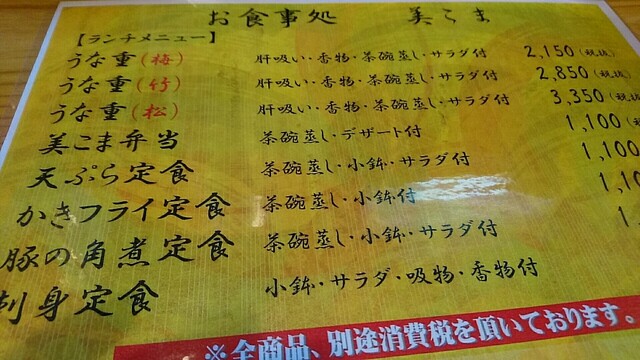 お食事処 美こま
【ランチメニュー】
うな重(梅) 肝吸い・香物・茶碗蒸し・サラダ付 2,150(税抜)
うな重(竹) 肝吸い・香物・茶碗蒸し・サラダ付 2,850(税抜)
うな重(松) 肝吸い・香物・茶碗蒸し・サラダ付 3,350(税抜
美こま弁当 茶碗蒸し・デザート付 1,100(税
天ぷら定食 茶碗蒸し・小鉢・サラダ付 1,100
かきフライ定食 茶碗蒸し・小鉢付 1,10
豚の角煮定食 茶碗蒸し・小鉢・サラダ付
刺身定食 小鉢・サラダ・吸物・香物付
※全商品、別途消費税を頂いております。